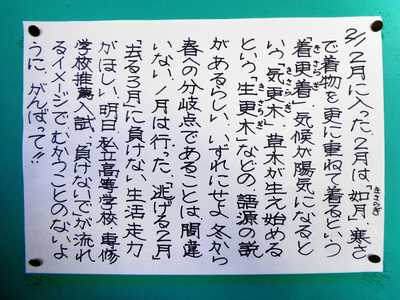 2/1 2月に入った。2月は「如月」、寒さ
きさらぎ
で着物を更に重ねて着るという
「着更着」、気候が陽気になると
きさらぎ
いう「気更木」、草木が生え始める
きさらぎ
という「生更木」などの語源の説
きさらぎ
があるらしい。いずれにせよ、冬から
春への分岐点であることは、間違
いない。1月は行った、「逃げる2月」
「去る3月」に負けない、生活走力
がほしい。明日、私立高等学校・専修
学校推薦入試。「負けないで」が流れ
るイメージで、むかうことのないよ
うに、がんばって!!